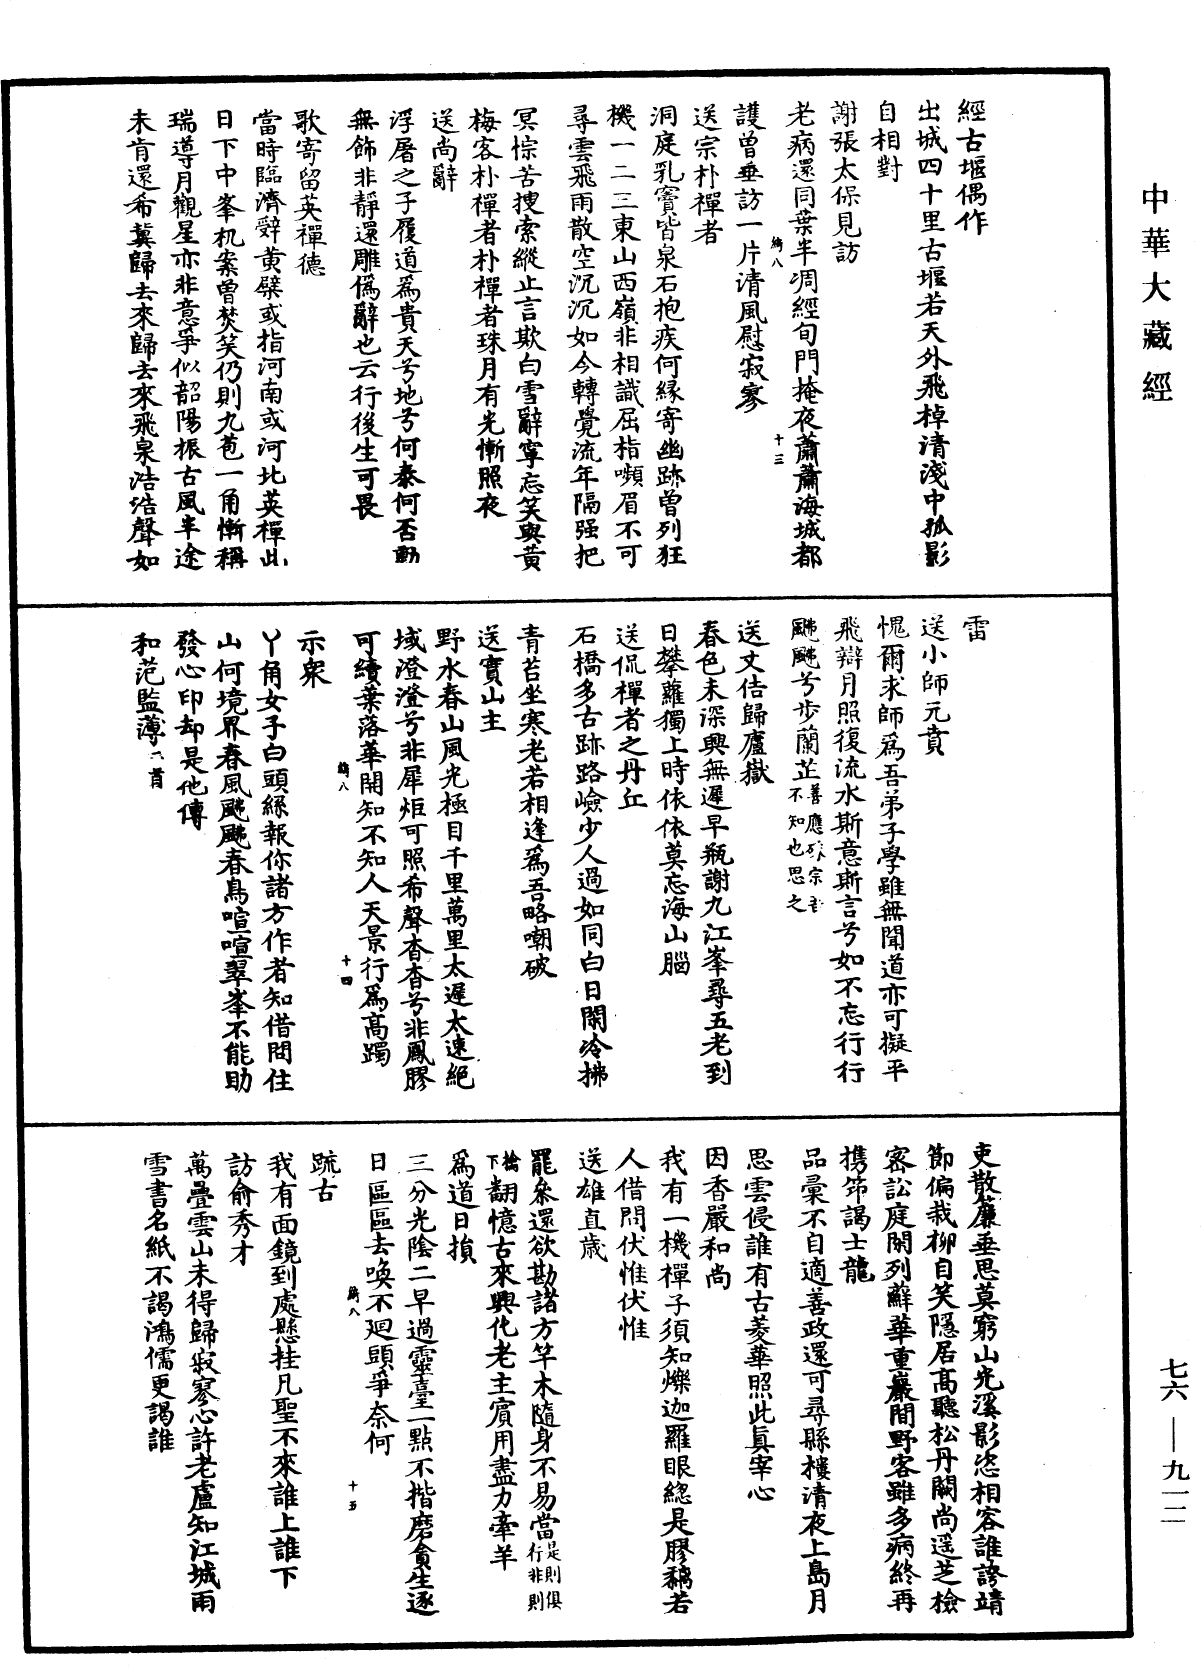 中華大藏經
經古堰偶作
出城四十里古堰若天外飛棹清淺中孤影
自相對
謝張太保見訪
老病還同葉半凋經旬門掩夜蕭蕭海城都
綺八
十三
護曾垂訪一片清風慰寂寥
送宗朴禪者
洞庭乳竇皆泉石抱疾何緣寄幽跡曾列狂
機一二三東山西嶺非相識屈指嚬眉不可
尋雲飛雨散空沉沉如今轉覺流年隔强把
冥悰苦搜索縱止言欺白雪辭寧忘笑與黃
梅客朴禪者朴禪者珠月有光慚照夜
送尚辭
浮屠之子履道爲貴天兮地兮何泰何否動
無飾非靜還雕僞辭也云行後生可畏
歌寄留英禪德
當時臨濟辭黃檗或指河南或河北英禪此
日下中峯机案曾焚笑仍則九苞一角慚稱
瑞導月觀星亦非意爭似韶陽振古風半途
未肯還希冀歸去來歸去來飛泉浩浩聲如
雷
送小師元賁
愧爾求師爲吾弟子學雖無聞道亦可擬平
飛辯月照復流水斯意斯言兮如不忘行行
颺颺兮步蘭芷善應宗不知也思之
送文佶歸廬嶽
春色未深興無遲早瓶謝九江峯尋五老到
日攀蘿獨上時依依莫忘海山腦
送侃禪者之丹丘
石橋多古跡路嶮少人過如同白日閑冷拂
青苔坐寒老若相逢爲吾略嘲破
送寶山主
野水春山風光極目千里萬里太遲太速絕
域澄澄兮非犀炬可照希聲杳杳兮非鳳膠
可續葉落華開知不知人天景行爲高躅
綺八
十四
示衆
丫角女子白頭絲報你諸方作者知借問住
山何境界春風颺颺春鳥喧喧翠峯不能助
發心印却是他傳
和范監薄二首
吏散簾垂思莫窮山光溪影恣相容誰誇靖
節偏栽柳自笑隱居高聽松丹闕尚遥芝檢
密訟庭閑列蘚華重巖間野客雖多病終再
携笻謁士龍
品彙不自適善政還可尋縣樓清夜上島月
思雲侵誰有古菱華照此眞宰心
因香嚴和尚
我有一機禪子須知爍迦羅眼總是膠䵑若
人借問伏惟伏惟
送雄直歲
罷𠫵還欲勘諸方竿木隨身不易當是則俱行非則
下翻憶古來興化老主賓用盡力牽羊
爲道日損
三分光陰二早過靈臺一點不揩磨貪生逐
日區區去喚不廻頭爭奈何
綺八
十五
疏古
我有面鏡到處懸挂凡聖不來誰上誰下
訪俞秀才
萬疊雲山未得歸寂寥心許老盧知江城雨
雪書名紙不謁鴻儒更謁誰
七六—九一二